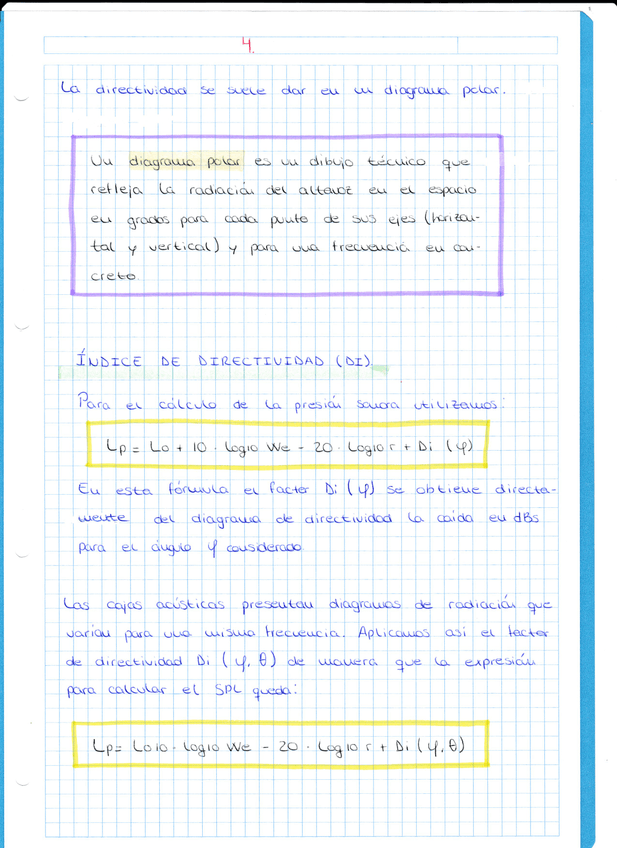 4.
La directividad se suele dar en un diagrama polar.
Un diagrama polar es un dibujo técnico que
refleja la radiación del altavoz en el espacio
en grados para cada punto de sus ejes (horizon-
tal y vertical) y para una frecuencia en con-
creto.
ÍNDICE DE DIRECTIVIDAD (DI).
Para el cálculo de la presión sonora utilizamos:
Lp = Lo + 10 · Log10 We - 20 · Log10 r + Di (φ)
En esta fórmula el factor Di (φ) se obtiene directa-
mente del diagrama de directividad la caída en dBs
para el ángulo φ considerado.
Las cajas acústicas presentan diagramas de radiación que
varían para una misma frecuencia. Aplicamos así el factor
de directividad Di (φ, θ) de manera que la expresión
para calcular el SPL queda:
Lp= Lo10 · Log10 We - 20 · Log10 r + Di (φ, θ)